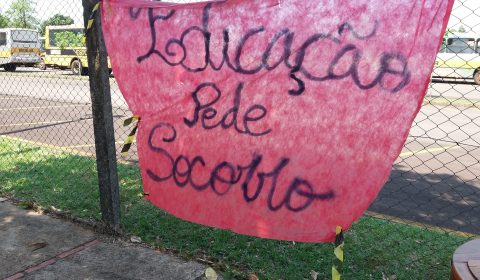 Educação
Pede
Socorro